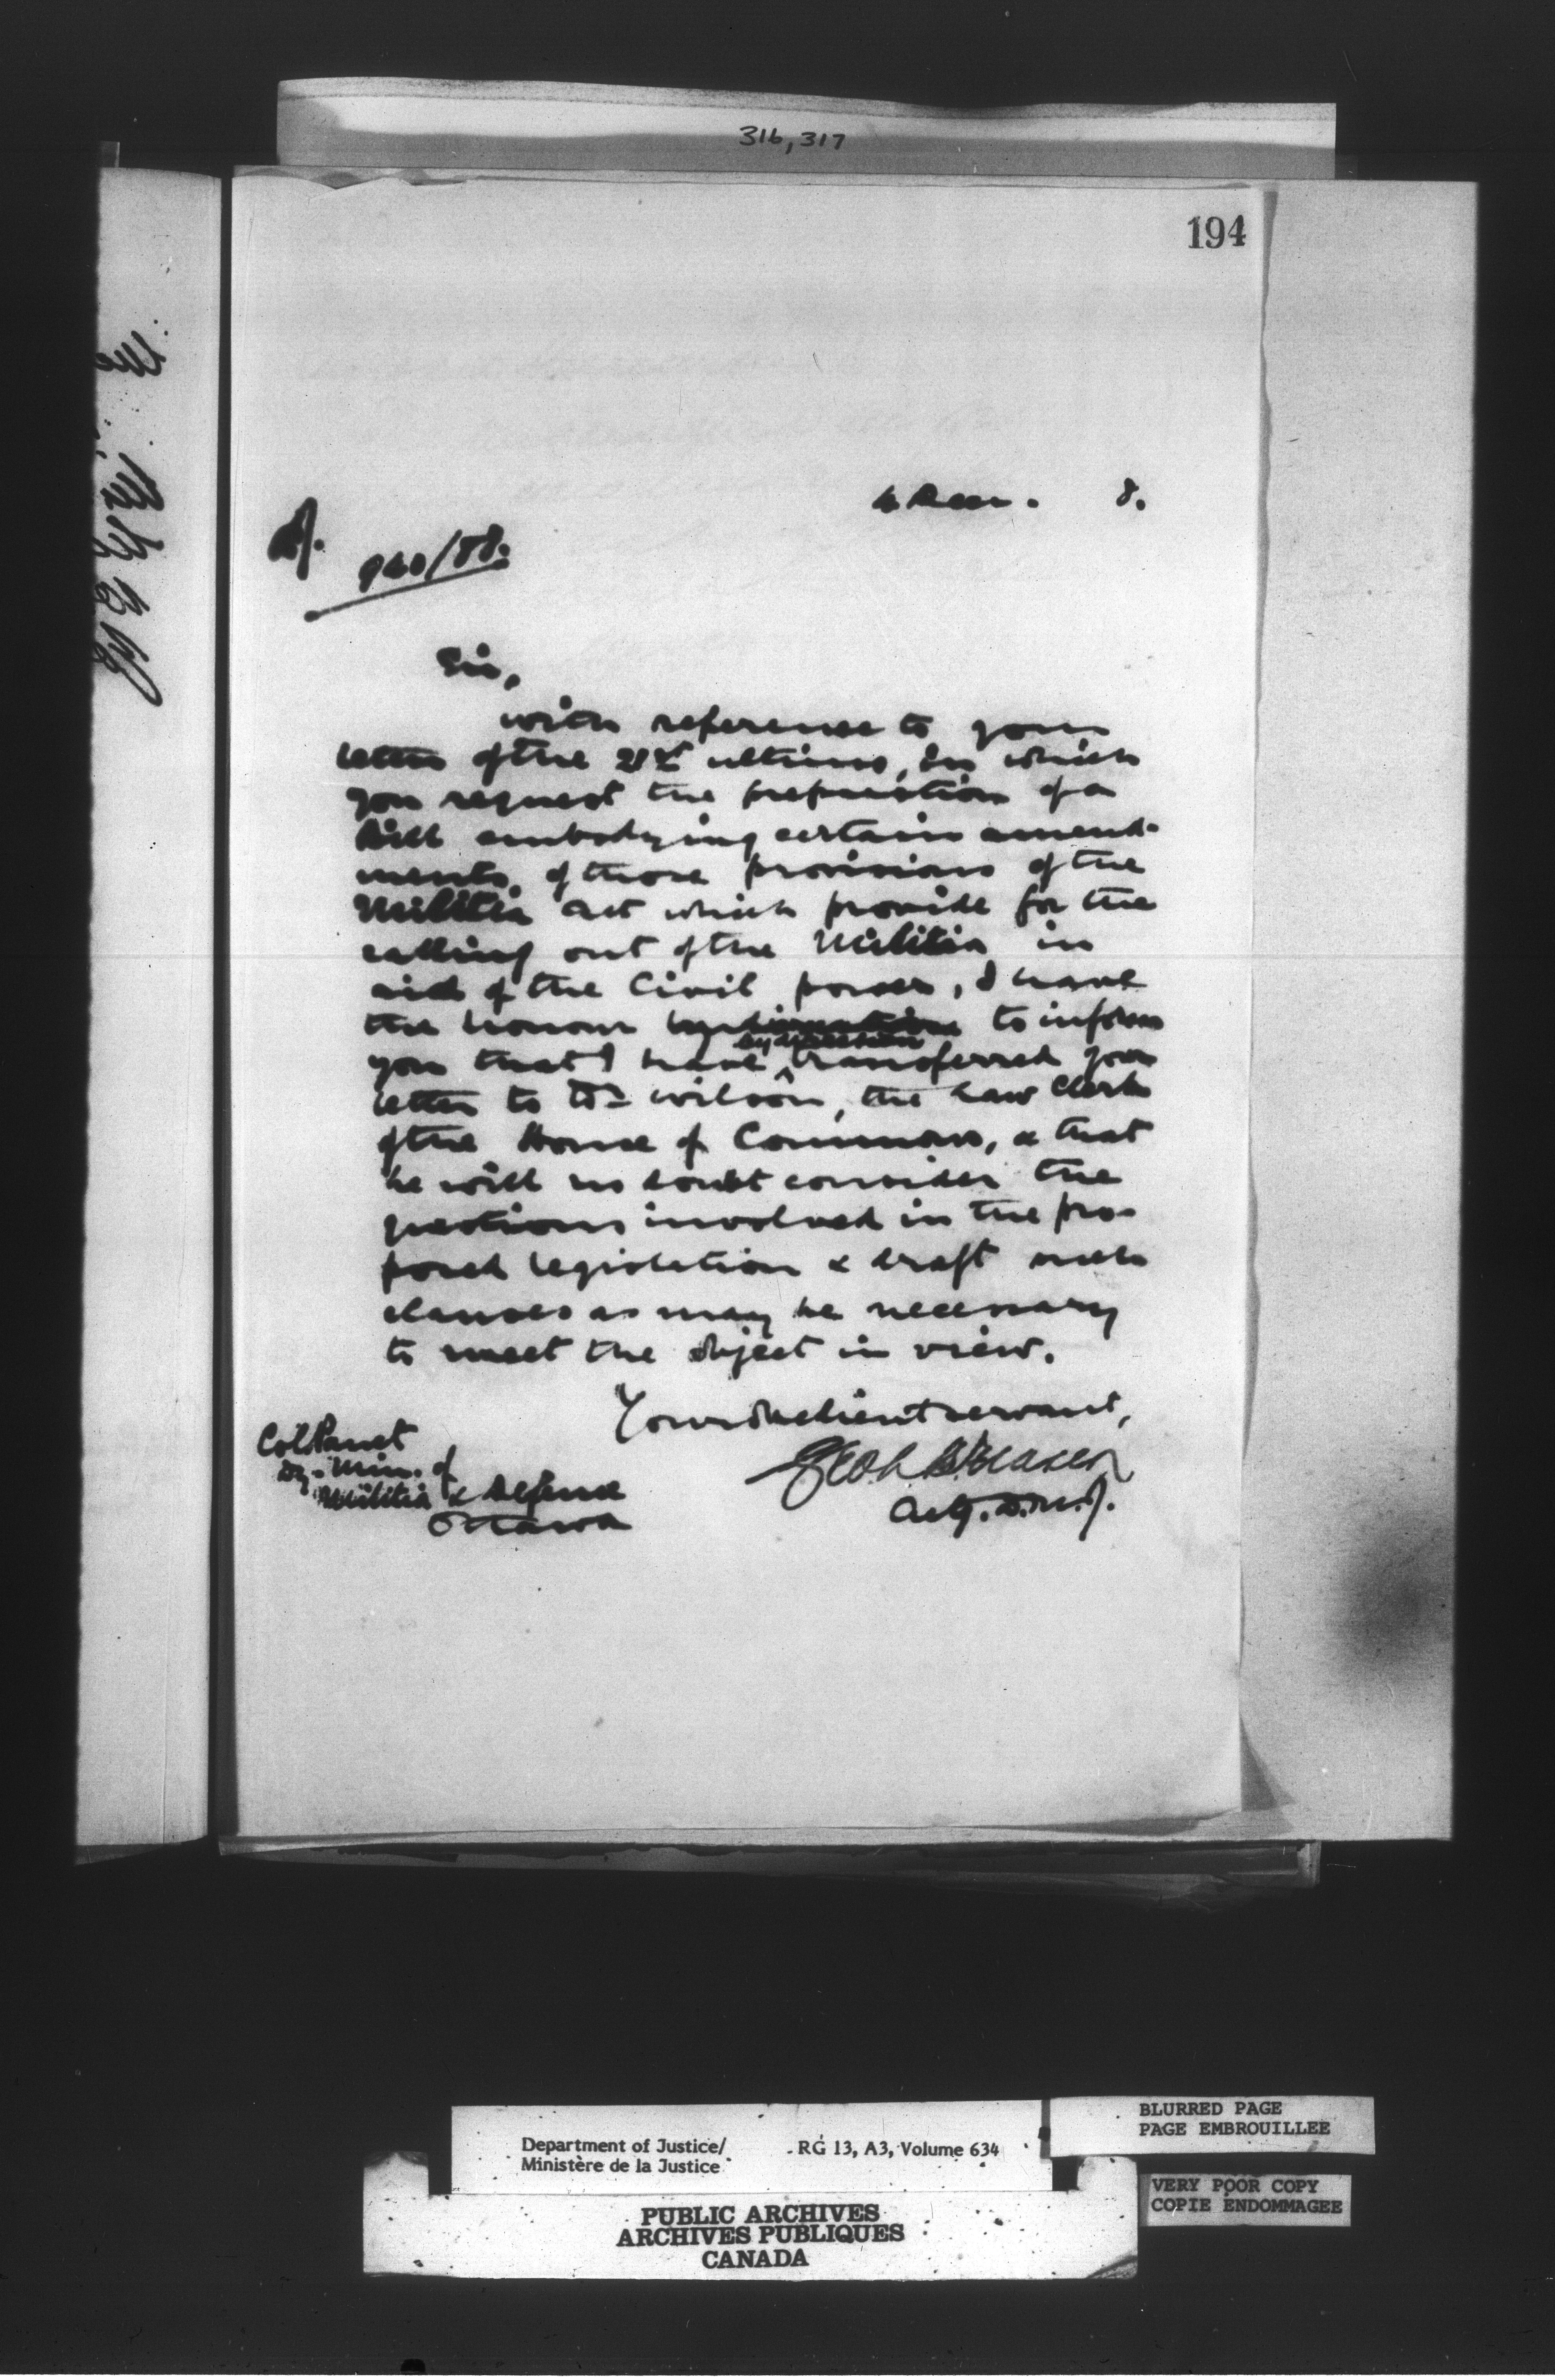 316, 317
194
4 Dec. 8.
940/88.
Sir,
With reference to your
letter of the 21st ultimo, in which
you request the preparation of a
Bill embodying certain amend-
ments of those provisions of the
Militia Act which provide for the
calling out of the Militia in
aid of the Civil power, I have
the honour to inform
by direction
you that I have transferred your
letter to Dr Wilson, the Law Clerk
of the House of Commons, & that
he will no doubt consider the
questions involved in the pro-
posed legislation & draft such
clauses as may be necessary
to meet the object in view.
Your obedient servant,
Col Panet
Dy. Min. of
Militia & Defence
Ottawa
Geo L B Fraser
Actg. D.M.J.
BLURRED PAGE
PAGE EMBROUILLEE
Department of Justice/ RG 13, A3, Volume 634
Ministère de la Justice
VERY POOR COPY
COPIE ENDOMMAGEE
PUBLIC ARCHIVES
ARCHIVES PUBLIQUES
CANADA